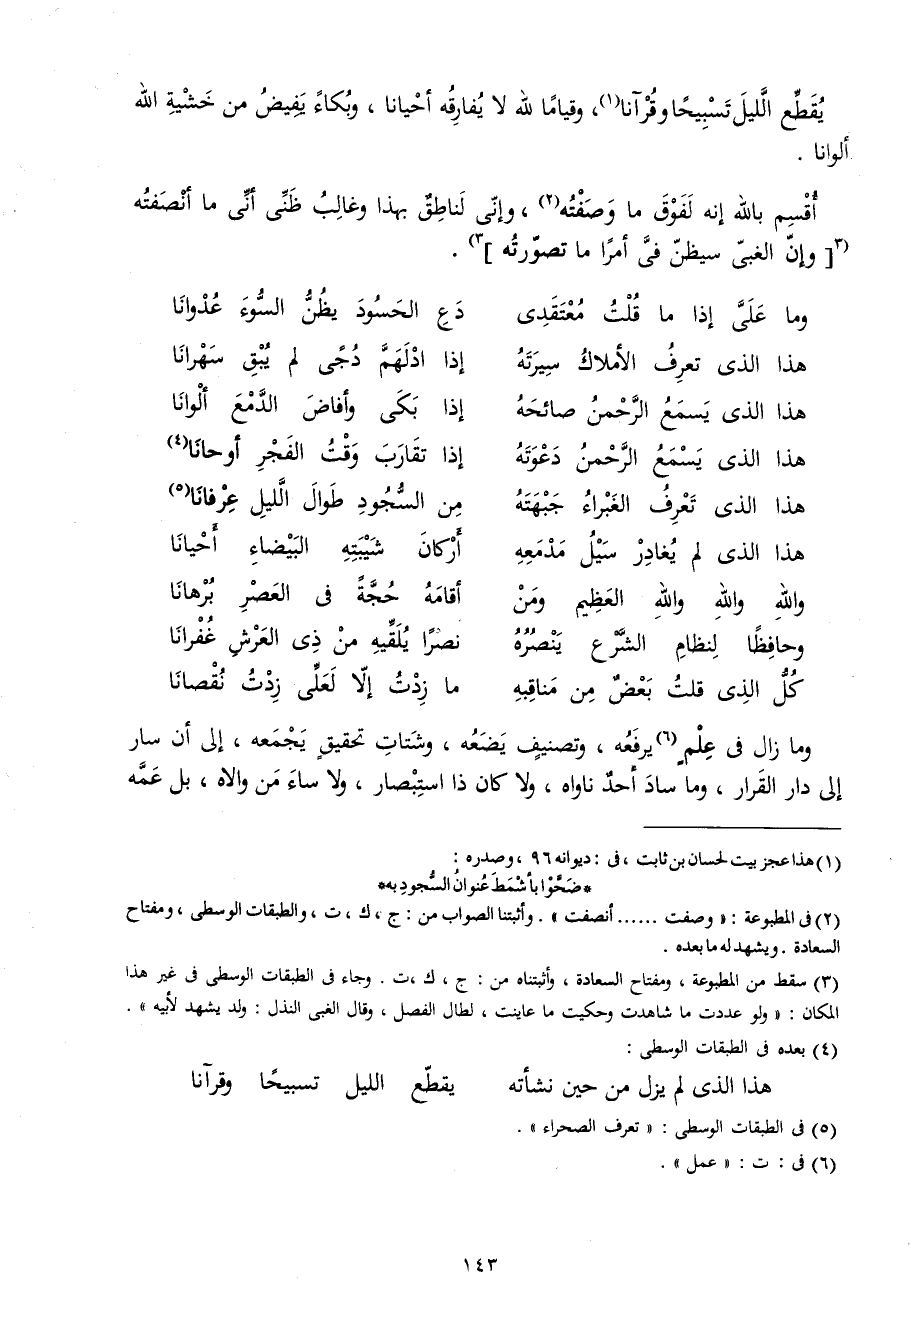 يُقَطِّع الَّليلَ تَسْبِيحًا وقُرْآنا(١)، وقيامًا لله لا يُفارِقُه أحْيانا ، وبُكاءً يَفِيضُ من خَشْيةِ الله
ألوانا .
أُقْسِم بالله إنه لَفَوْقَ ما وَصَفْتُه(٢) ، وإنّى لَناطِقٌ بهذا وغالِبُ ظَنِّى أنِّى ما أنْصَفتُه
(٣[ وإنّ الغبىّ سيظنّ فىَّ أمرًا ما تصوّرتُه ]٣) .
وما عَلَىَّ إذا ما قُلْتُ مُعْتَقَدِى دَعِ الحَسُودَ يظُنُّ السُّوءَ عُدْوانَا
هذا الذى تعرِفُ الأملاكُ سِيرَتَهُ إذا ادْلَهَمَّ دُجًى لم يُبْقِ سَهْرانَا
هذا الذى يَسمَعُ الرَّحْمنُ صائحَهُ إذا بَكَى وأفاضَ الدَّمْعَ ألْوانَا
هذا الذى يَسْمَعُ الرَّحْمنُ دَعْوَتَهُ إذا تقَارَبَ وَقْتُ الفَجْرِ أوحانَا(٤)
هذا الذى تَعْرِفُ الغَبْراءُ جَبْهَتَهُ مِن السُّجُودِ طَوالَ الَّليلِ عِرْفانَا(٥)
هذا الذى لم يُغادِرْ سَيْلُ مَدْمَعِهِ أَرْكانَ شَيْبَتِهِ البَيْضاءِ أَحْيانَا
واللهِ واللهِ واللهِ العَظِيمِ ومَنْ أقامَهُ حُجَّةً فى العَصْرِ بُرْهانَا
وحافِظًا لِنظامِ الشَّرْعِ يَنْصُرُهُ نصْرًا يُلَقِّيهِ مِنْ ذِى العَرْشِ غُفْرانَا
كُلُّ الذِى قلتُ بَعْضٌ مِن مَناقِبِهِ ما زِدْتُ إلّا لَعَلِّى زِدْتُ نُقْصانَا
وما زال فى عِلْمٍ(٦) يرفَعُه ، وتصنيفٍ يَضَعُه ، وشَتاتِ تحقيقٍ يَجْمَعه ، إلى أن سار
إلى دار القَرار ، وما سادَ أحدٌ ناواه ، ولا كان ذا استِبْصار ، ولا ساءَ مَن والاه ، بل عَمَّه
(١) هذا عجز بيت لحسان بن ثابت ، فى : ديوانه ٩٦ ، وصدره :
*ضَحَّوْا بأشْمَطَ عُنوانُ السُّجودِ به*
(٢) فى المطبوعة : « وصفت ...... أنصفت » . وأثبتنا الصواب من : ج ، ك ، ت ، والطبقات الوسطى ، ومفتاح
السعادة . ويشهد له ما بعده .
(٣) سقط من المطبوعة ، ومفتاح السعادة ، وأثبتناه من : ج ، ك ،ت . وجاء فى الطبقات الوسطى فى غير هذا
المكان : « ولو عددت ما شاهدت وحكيت ما عاينت ، لطال الفصل ، وقال الغبى النذل : ولد يشهد لأبيه » .
(٤) بعده فى الطبقات الوسطى :
هذا الذى لم يزل من حين نشأته يقطّع الليل تسبيحًا وقرآنا
(٥) فى الطبقات الوسطى : « تعرف الصحراء » .
(٦) فى : ت : « عمل » .
١٤٣